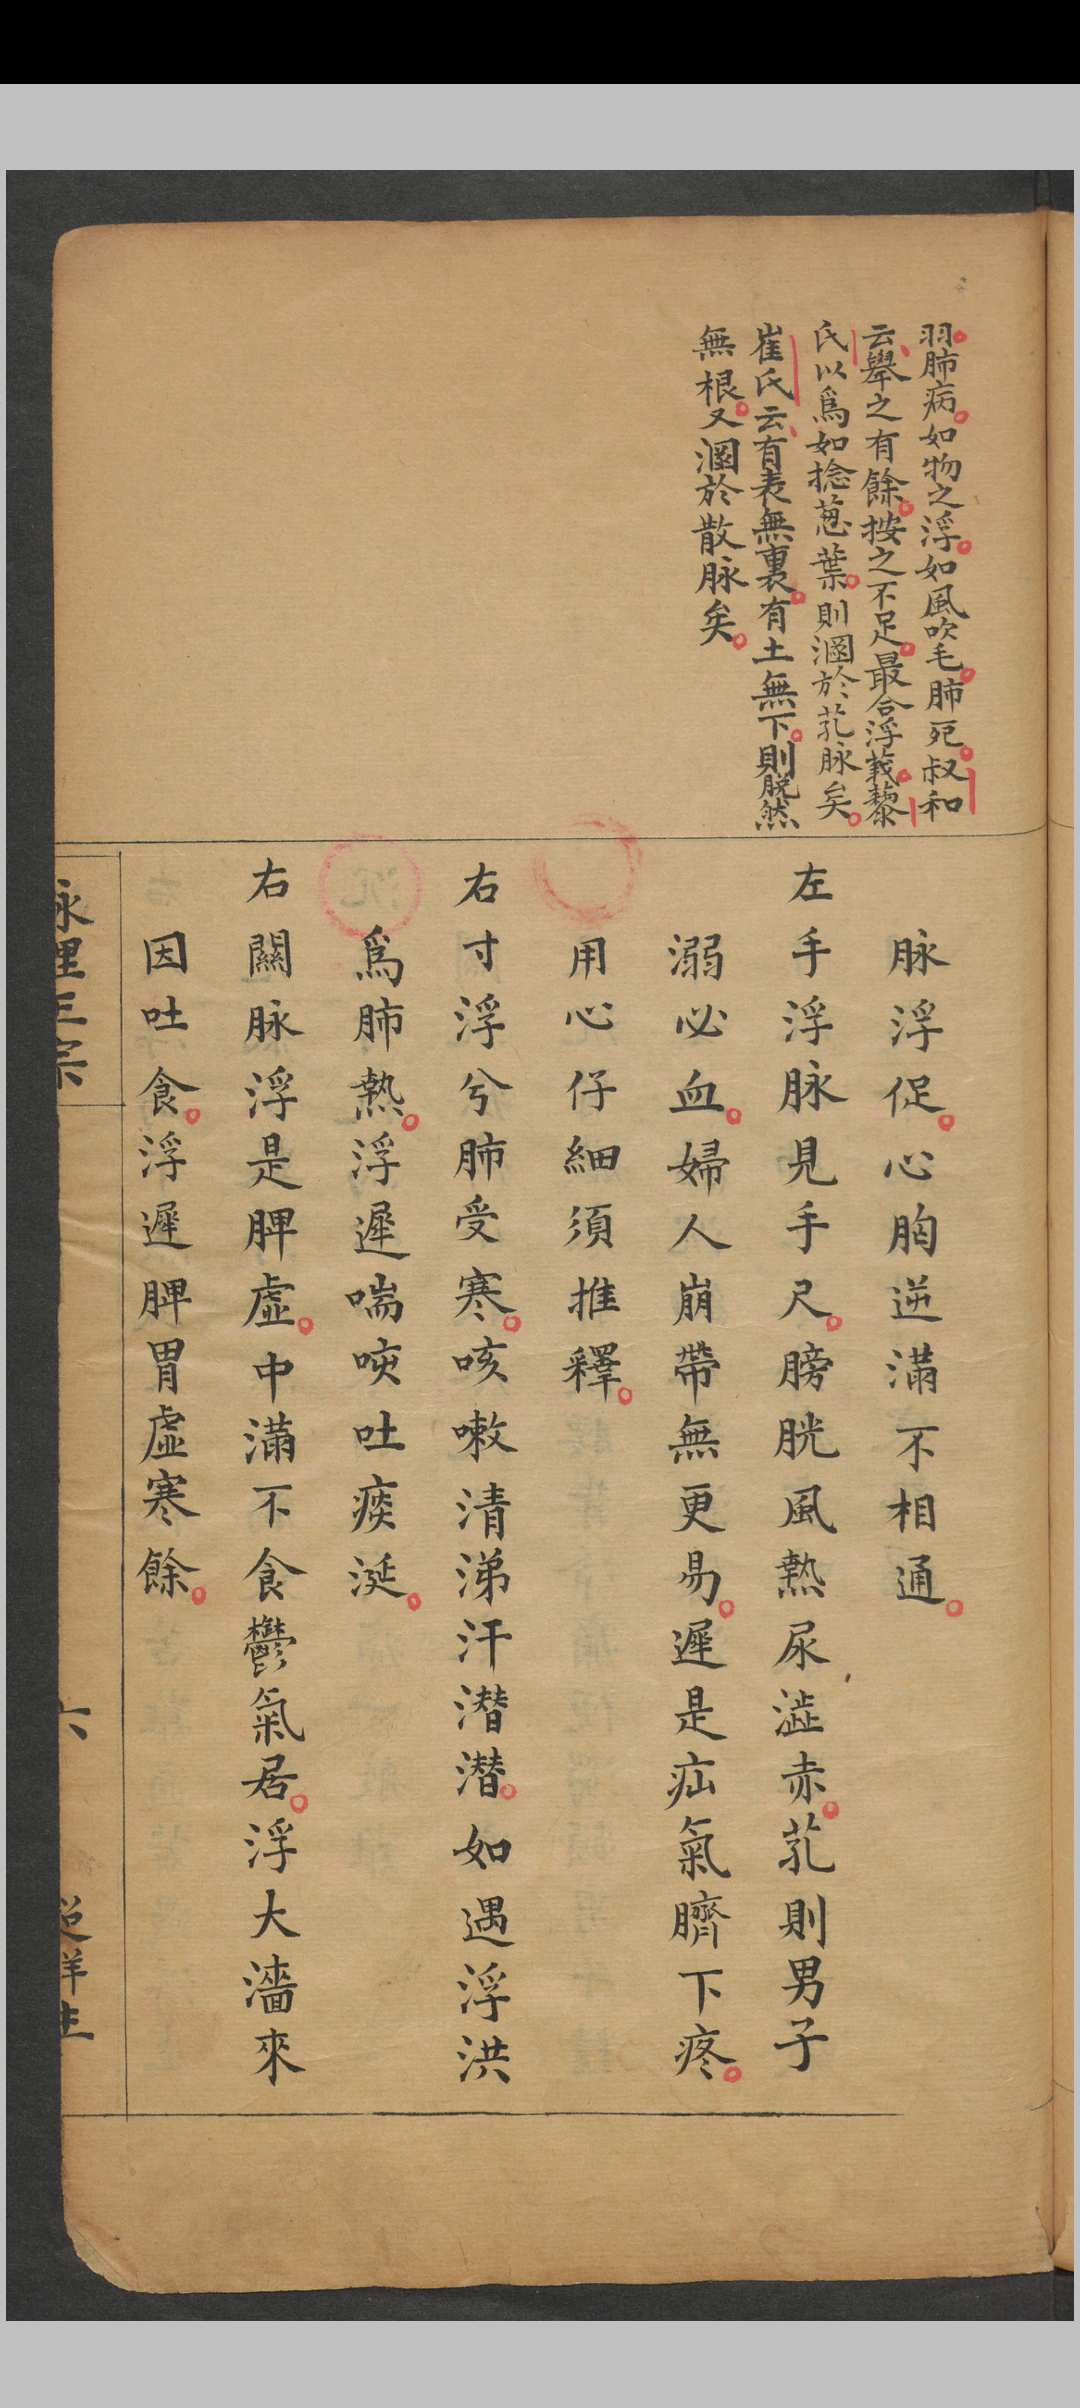 羽肺病如物之浮如風吹毛肺死叔和
云舉之有餘按之不足最合浮義藜
氏以爲如捻葱葉則溷於芤脉矣
崔氏云有表無裏有土無下則脫然
無根又溷於散脉矣
脉浮促心胸逆滿不相通
左手浮脉見手尺膀胱風熱尿澁赤芤則男子
溺必血婦人崩帶無更易遲是疝氣臍下疼
用心仔細須推釋
右寸浮兮肺受寒咳嗽清涕汗潛潛如遇浮洪
爲肺熱浮遲喘咳吐痰涎
右關脉浮是脾虛中滿不食鬱氣居浮大濇來
因吐食浮遲脾胃虛寒餘
六